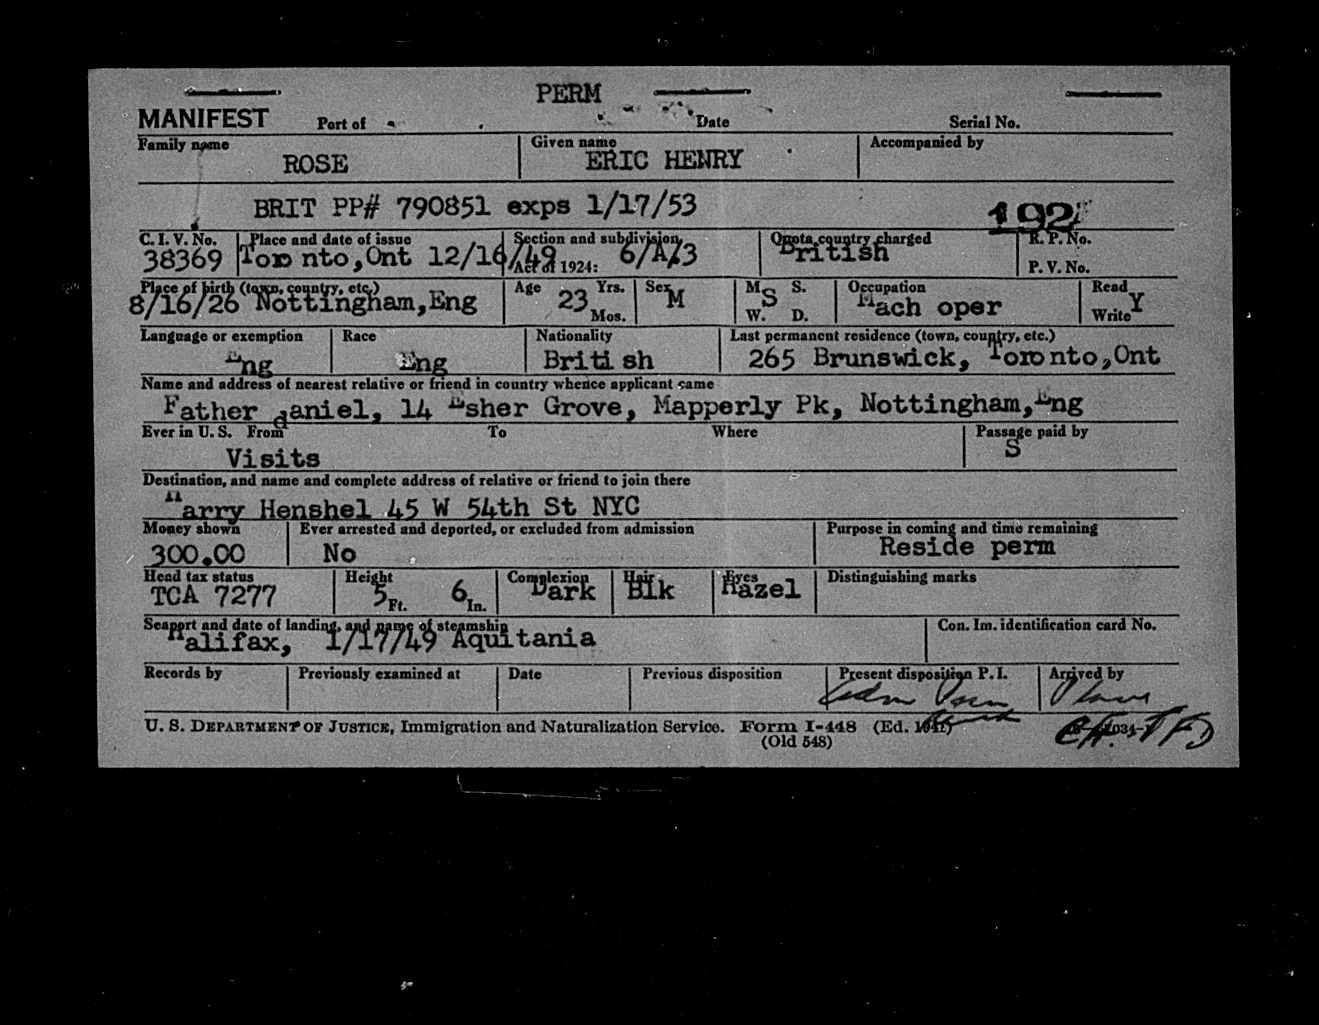 PERM
MANIFEST Port of Date Serial No.
Family name Given name Accompanied by
ROSE ERIC HENRY
BRIT PP# 790851 exps 1/17/53
192
C. I. V. No. Place and date of issue Section and subdivision Quota country charged R. P. No.
38369 Toronto,Ont 12/16/49 Act of 1924: 6/A/3 British P. V. No.
Place of birth (town, country, etc.) Age Yrs. Sex M. S. Occupation Read
8/16/26 Nottingham,Eng 23 Mos. M S W. D. Mach oper Write Y
Language or exemption Race Nationality Last permanent residence (town, country, etc.)
Eng Eng British 265 Brunswick, Toronto,Ont
Name and address of nearest relative or friend in country whence applicant came
Father daniel, 14 Esher Grove, Mapperly Pk, Nottingham,Eng
Ever in U. S. From To Where Passage paid by
Visits S
Destination, and name and complete address of relative or friend to join there
Harry Henshel 45 W 54th St NYC
Money shown Ever arrested and deported, or excluded from admission Purpose in coming and time remaining
300.00 No Reside perm
Head tax status Height Complexion Hair Eyes Distinguishing marks
TCA 7277 5 Ft. 6 In. Dark Blk Hazel
Seaport and date of landing, and name of steamship Con. Im. identification card No.
Halifax, 1/17/49 Aquitania
Records by Previously examined at Date Previous disposition Present disposition P. I. Arrived by
Plane
U. S. DEPARTMENT OF JUSTICE, Immigration and Naturalization Service. Form I-448 (Ed.
(Old 548)